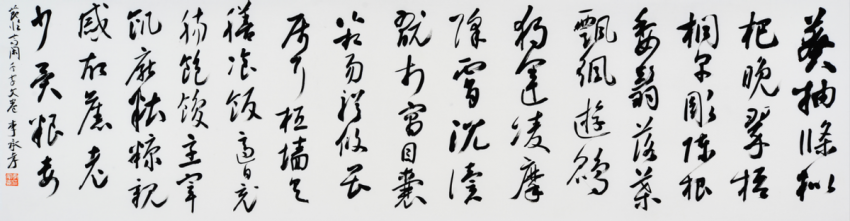 莽抽條枇
杷晚翠梧
桐早彫陳根
委翳落葉
飄颻遊鵾
獨運凌摩
絳霄耽讀
翫市寓目囊
箱易輶攸畏
屬耳垣墻具
膳飡飯適口充
腸飽飫烹宰
飢厭糟糠親
戚故舊老
少異粮妾
千字文卷 李永